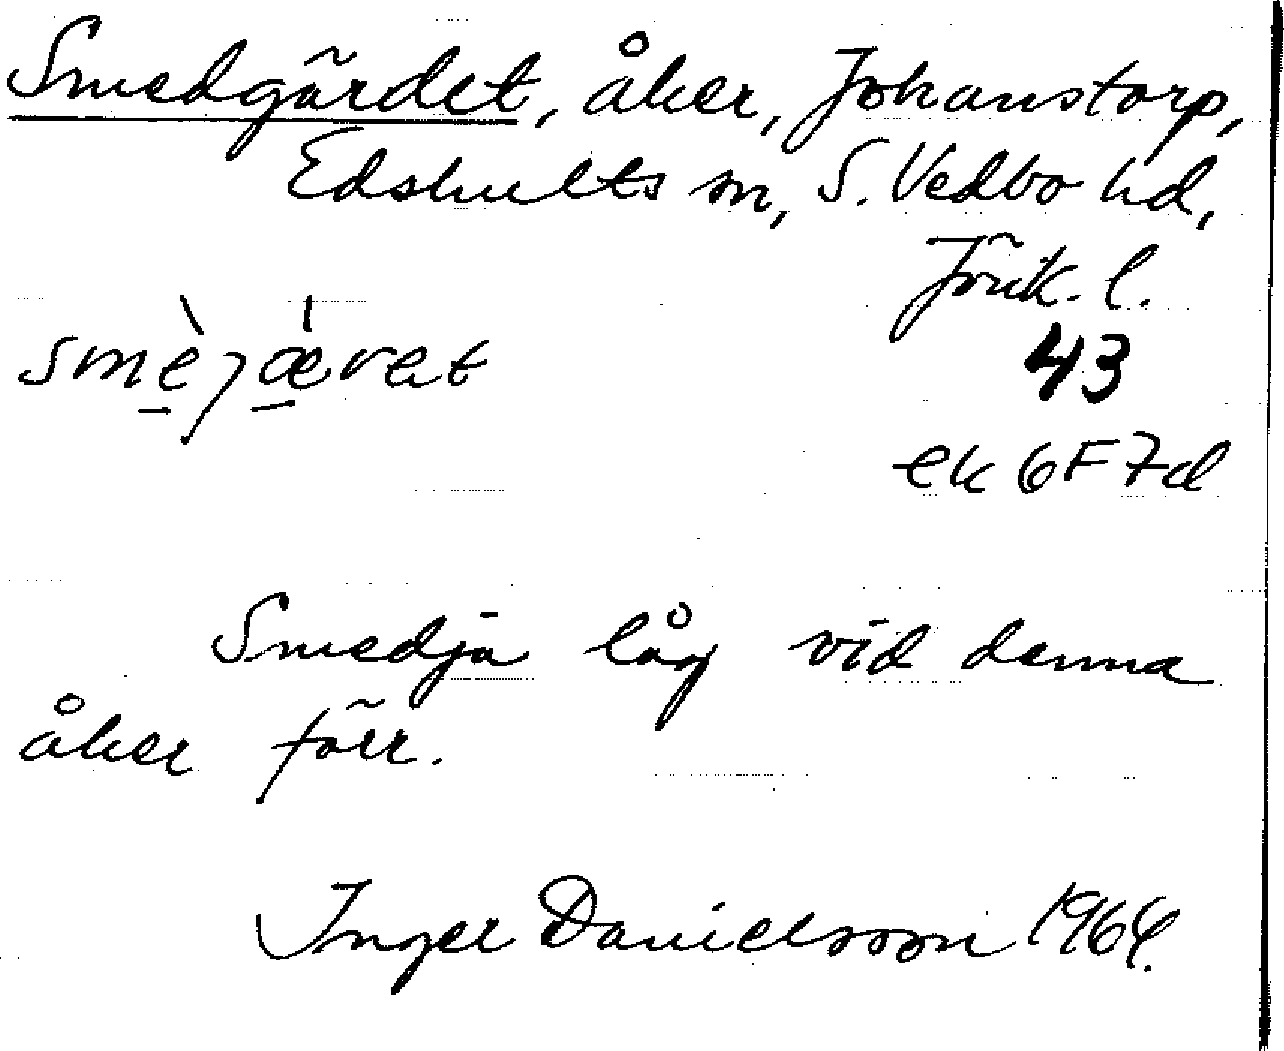 Smedgärdet, åker, Johanstorp,
Edshults sn, S. Vedbo hd,
Jönk. l.
smèjæ̀ret
43
ek 6F7d
Smedja låg vid denna
åker förr.
Inger Danielsson 1964.